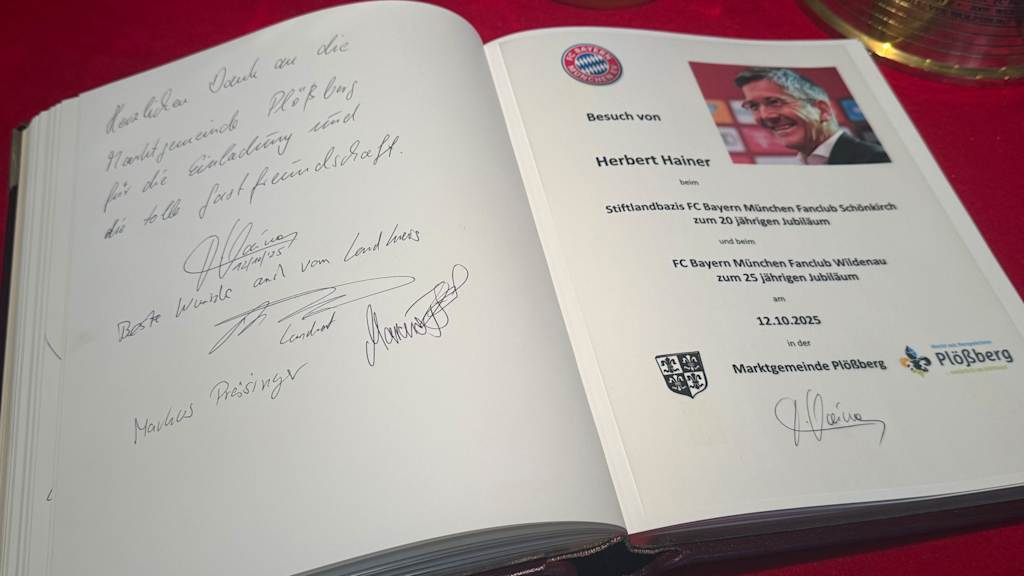 Herzlichen Dank an die
Marktgemeinde Plößberg
für die Einladung und
die tolle Gastfreundschaft.
12/10/25
Beste Wünsche auch vom Landkreis
Landrat
Markus Preisinger
FC BAYERN
MÜNCHEN
Besuch von
Herbert Hainer
beim
Stiftlandbazis FC Bayern München Fanclub Schönkirch
zum 20 jährigen Jubiläum
und beim
FC Bayern München Fanclub Wildenau
zum 25 jährigen Jubiläum
am
12.10.2025
in der
Marktgemeinde Plößberg
Plößberg